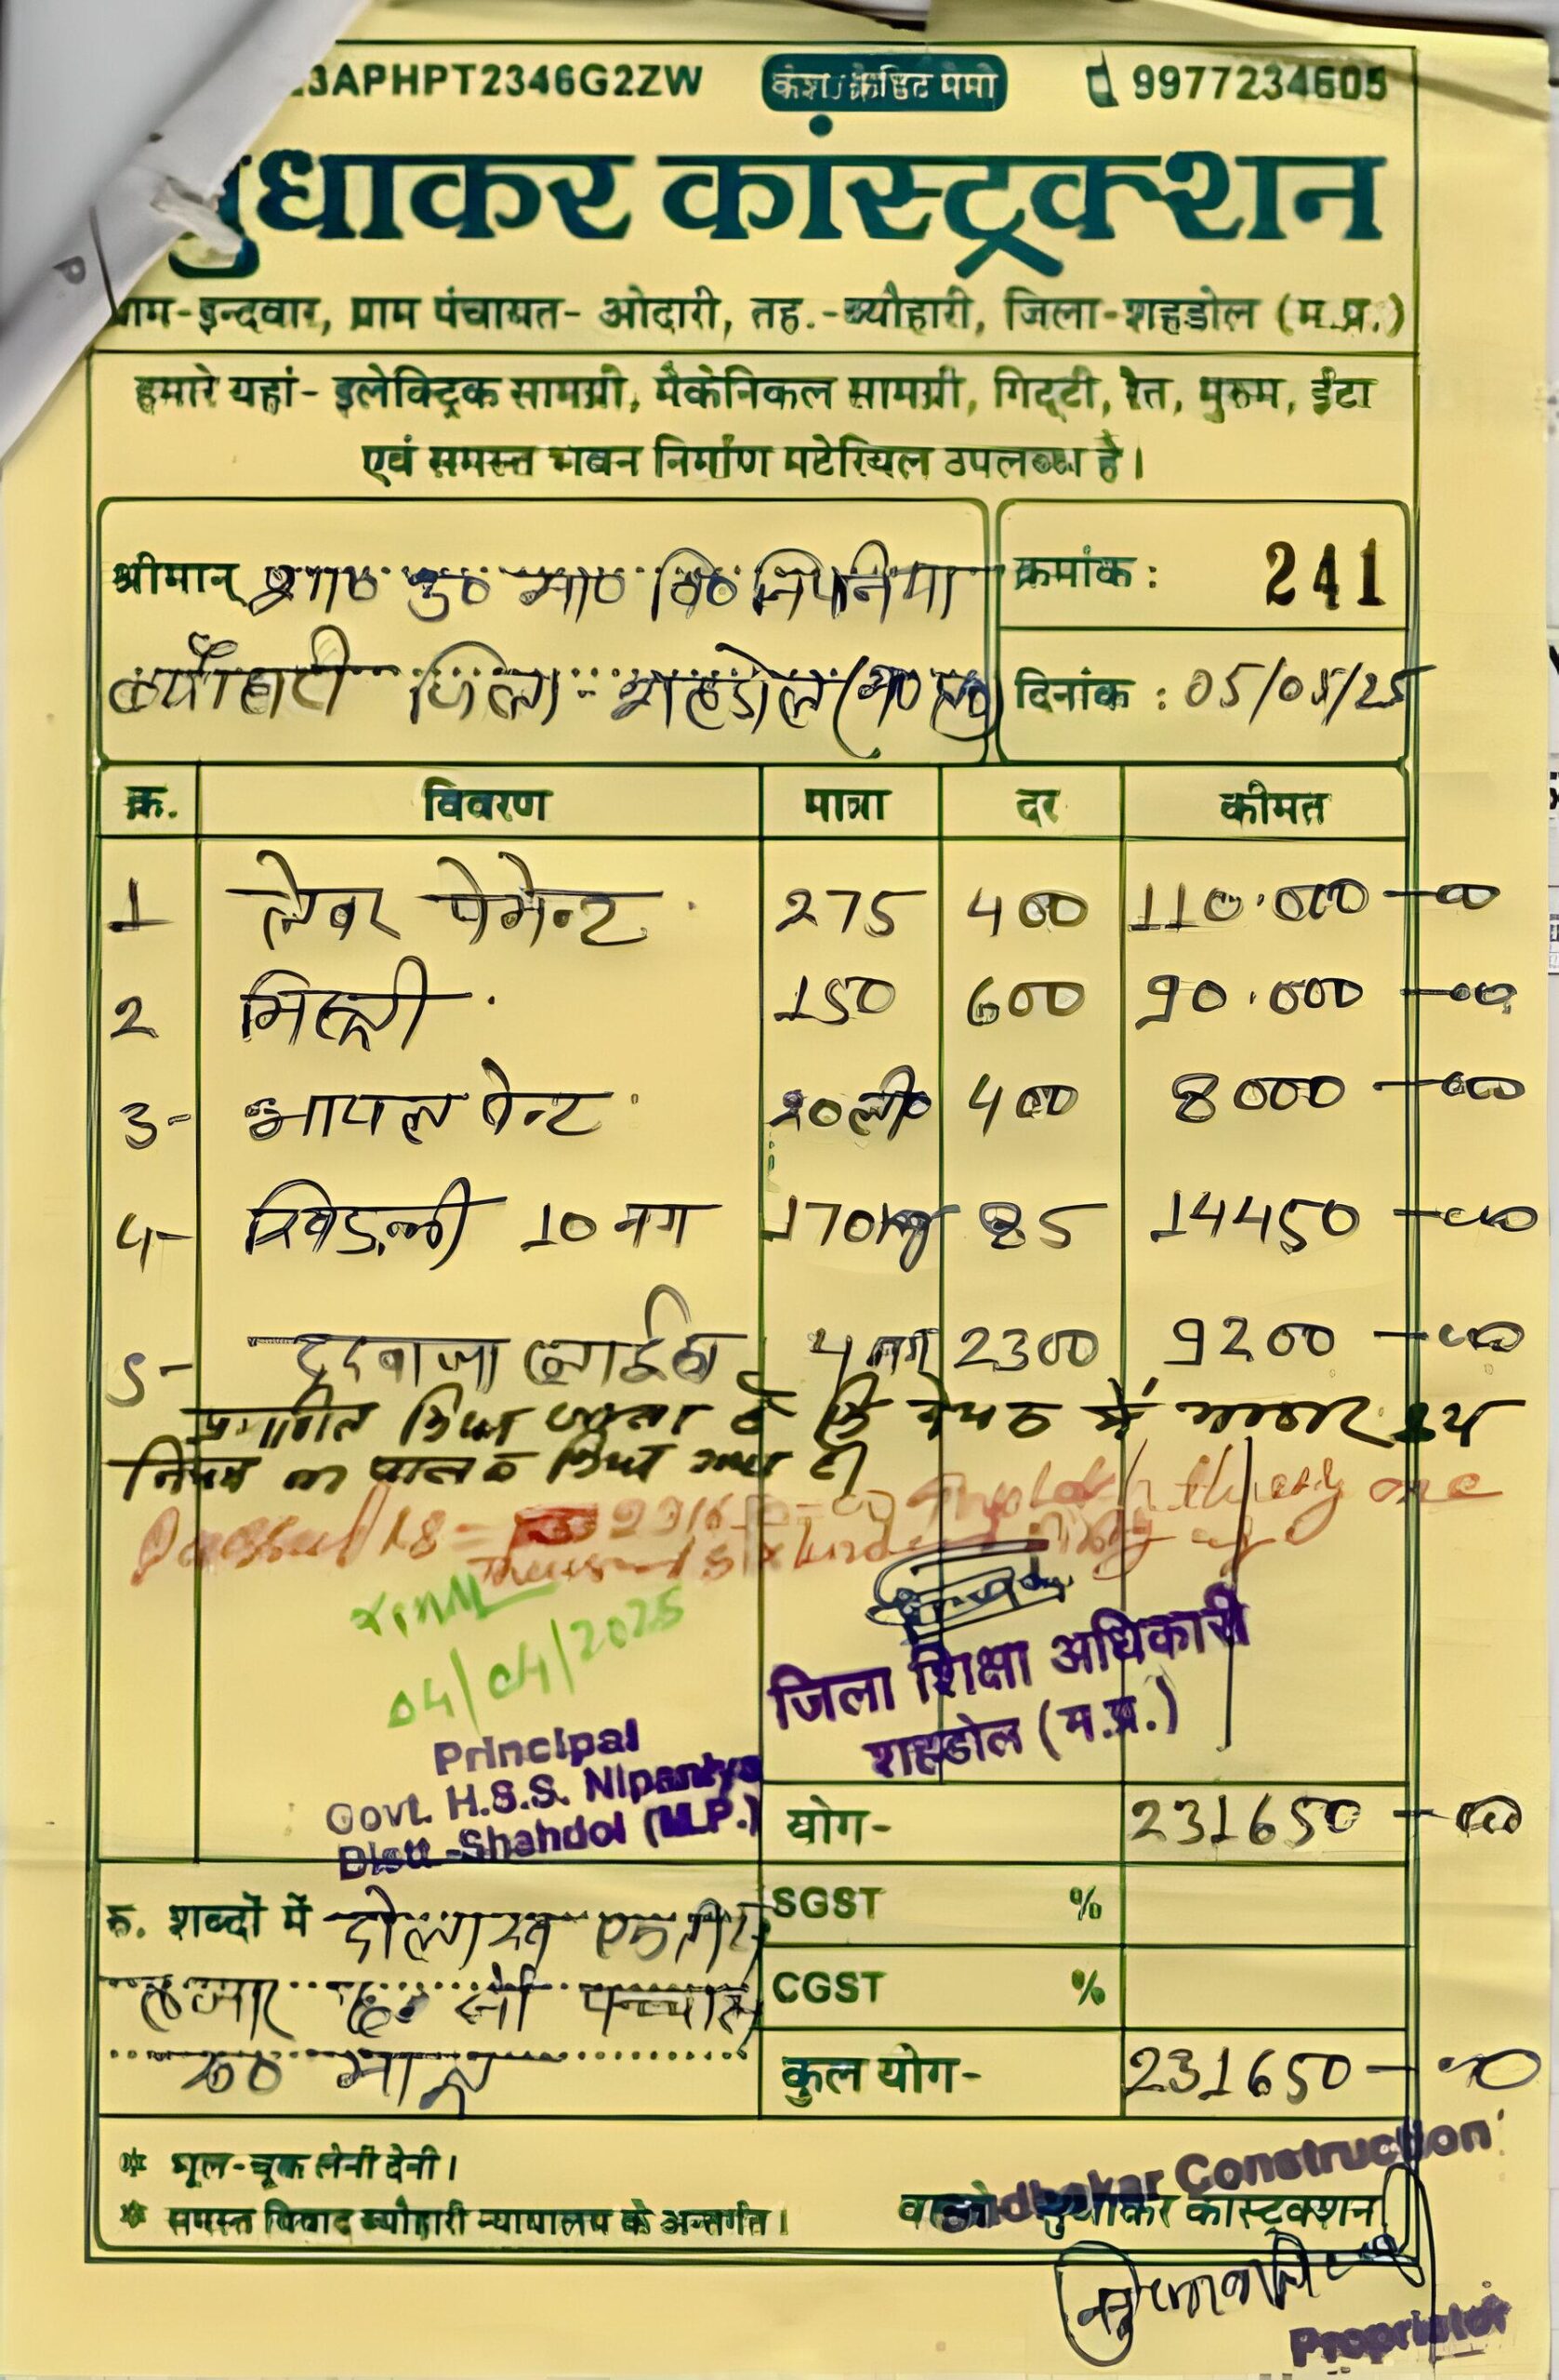 3APHPT2346G2ZW कैश/क्रेडिट मेमो 9977234605
सुधाकर कांस्ट्रक्शन
ग्राम-इन्दवार, ग्राम पंचायत- ओदारी, तह.-ब्यौहारी, जिला-शहडोल (म.प्र.)
हमारे यहां- इलेक्ट्रिक सामग्री, मैकेनिकल सामग्री, गिट्टी, रेत, मुरुम, ईंटा
एवं समस्त भवन निर्माण मटेरियल उपलब्ध है।
श्रीमान् शा० उ० मा० वि० निपनिया
क्रमांक: 241
ब्यौहारी जिला - शहडोल (म० प्र०)
दिनांक : 05/05/25
क्र. विवरण मात्रा दर कीमत
1 लेबर पेमेन्ट 275 400 110.000 -00
2 मिस्त्री 150 600 90.000 -00
3- आयल पेन्ट 20ली० 400 8000 -00
4- खिड़की 10 नग 170kg 85 14450 -00
5- दरवाजा 4 नग 2300 9200 -00
प्रमाणित किया जाता है कि में भण्डार क्रय
नियम का पालन किया गया है
Passed thirty one
04/04/2025
जिला शिक्षा अधिकारी
शहडोल (म.प्र.)
Principal
Govt. H.S.S. Nipaniya
Distt.-Shahdol (M.P.)
योग- 231650 -00
रु. शब्दों में दो लाख एकतीस
हजार छः सौ पच्चास
रू० मात्र
SGST %
CGST %
कुल योग- 231650 -00
* भूल-चूक लेनी देनी।
* समस्त विवाद ब्यौहारी न्यायालय के अन्तर्गत।
Sudhakar Construction
वास्ते सुधाकर कांस्ट्रक्शन
Proprietor